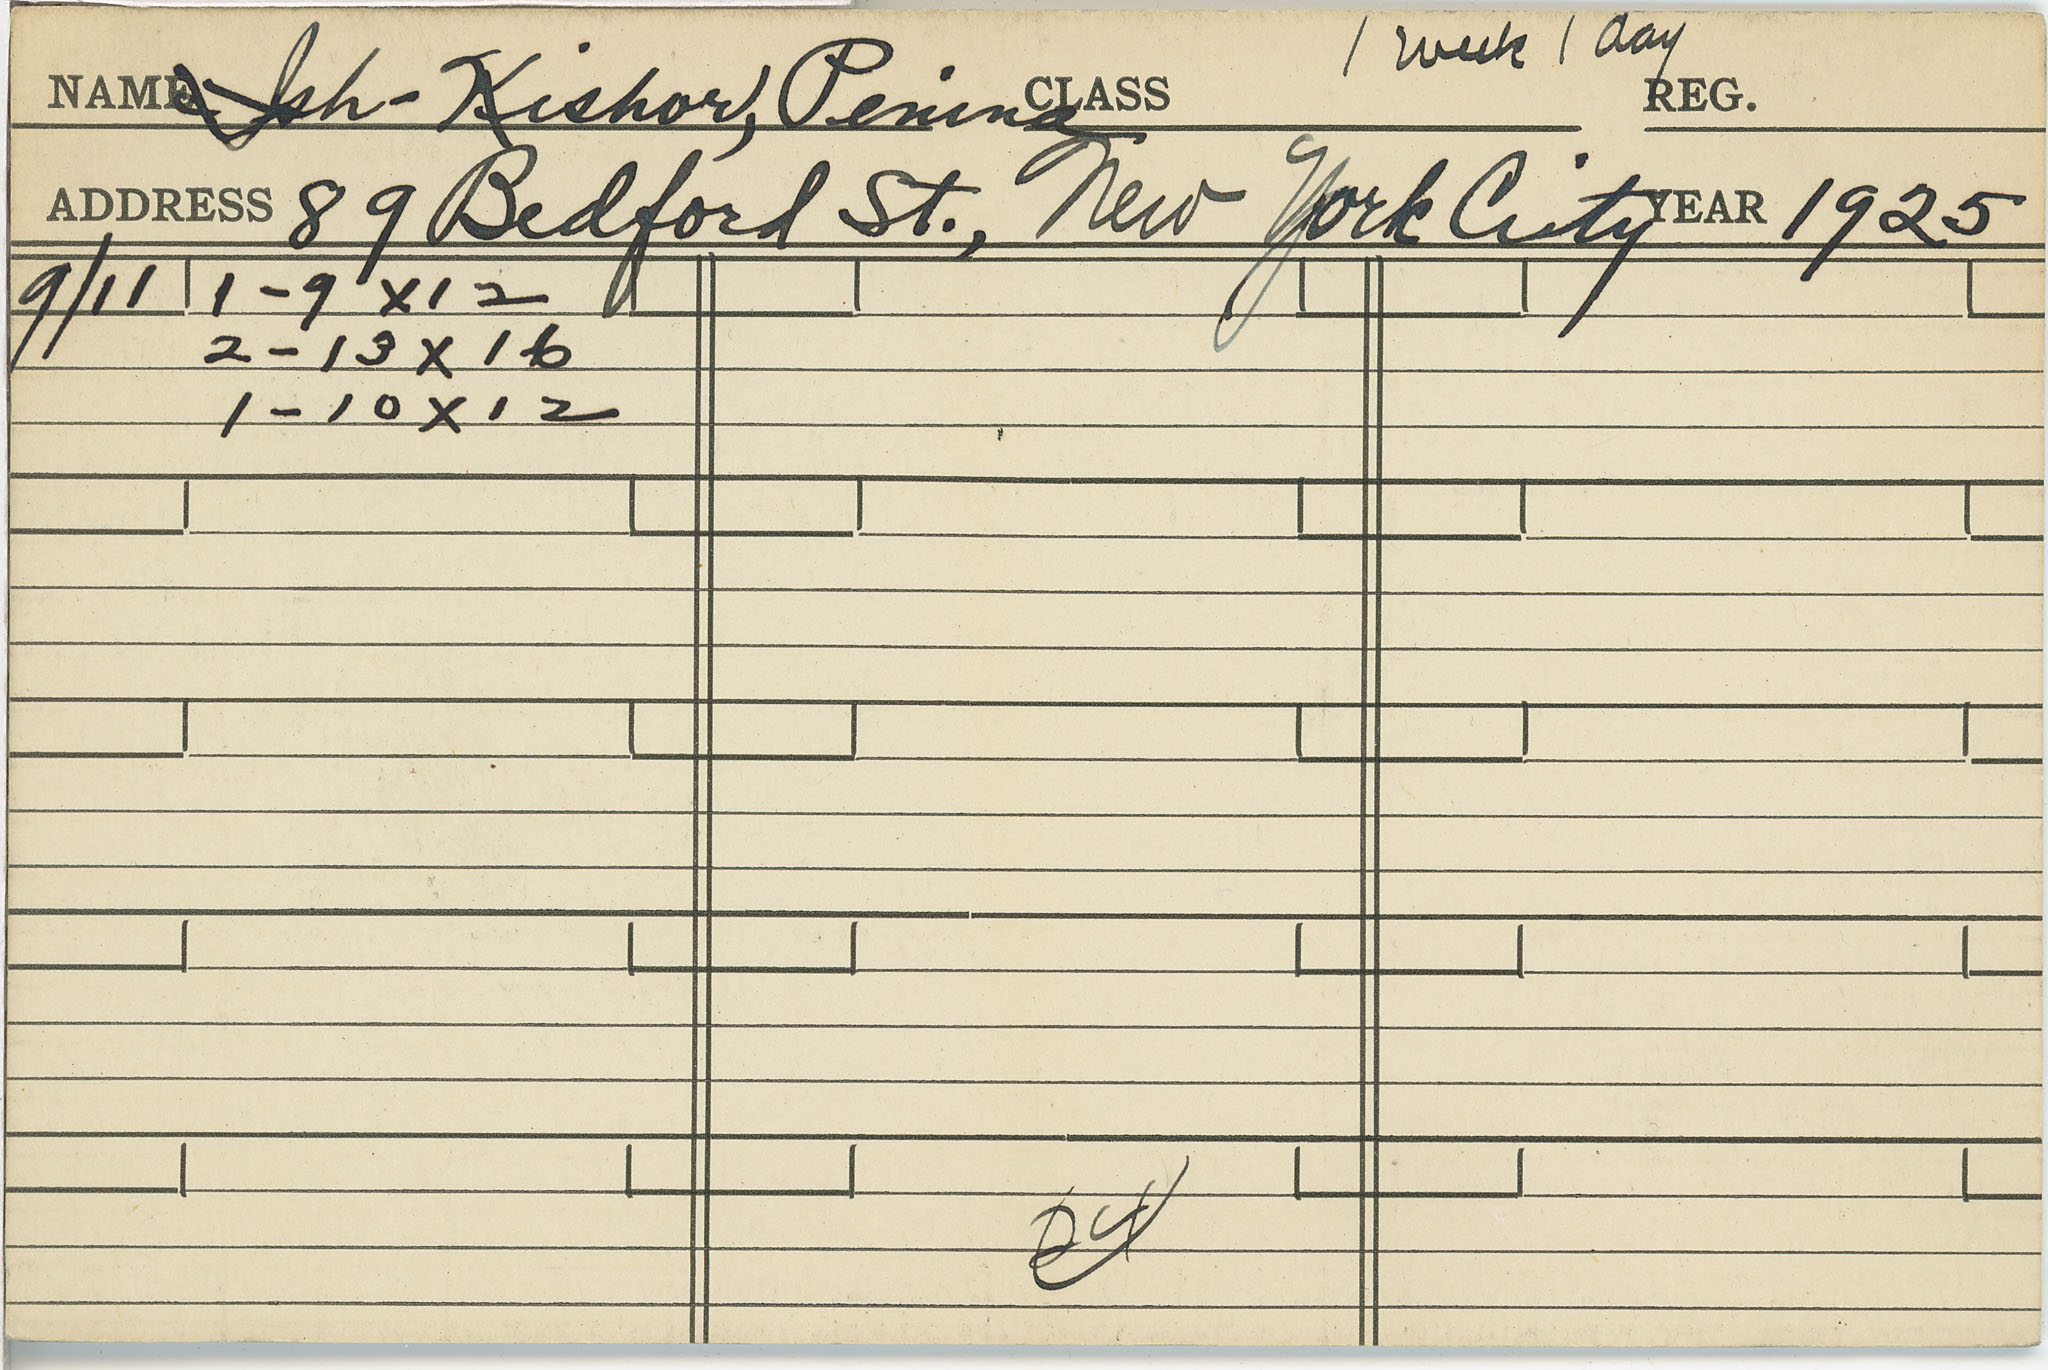 1 week 1 day
NAME Ish-Kishor, Penina CLASS REG.
ADDRESS 89 Bedford St., New York City YEAR 1925
9/11 1-9 x 12
2-13 x 16
1-10 x 12